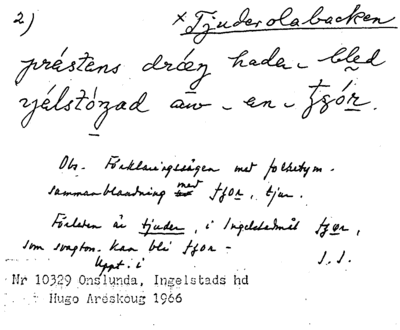 2) × Tjuderolabacken
préstens drǫęg hada - bled
ɣjálstózad aw - en - tjór.
Obs. Förklaringssägen med folketym.
sammanblandning med tjor, tjur.
Förleden är tjuder, i Ingelstadmål tjør,
som svagton. kan bli tjor -
Uppt. i J. J.
Nr 10329 Onslunda, Ingelstads hd
Hugo Areskoug 1966